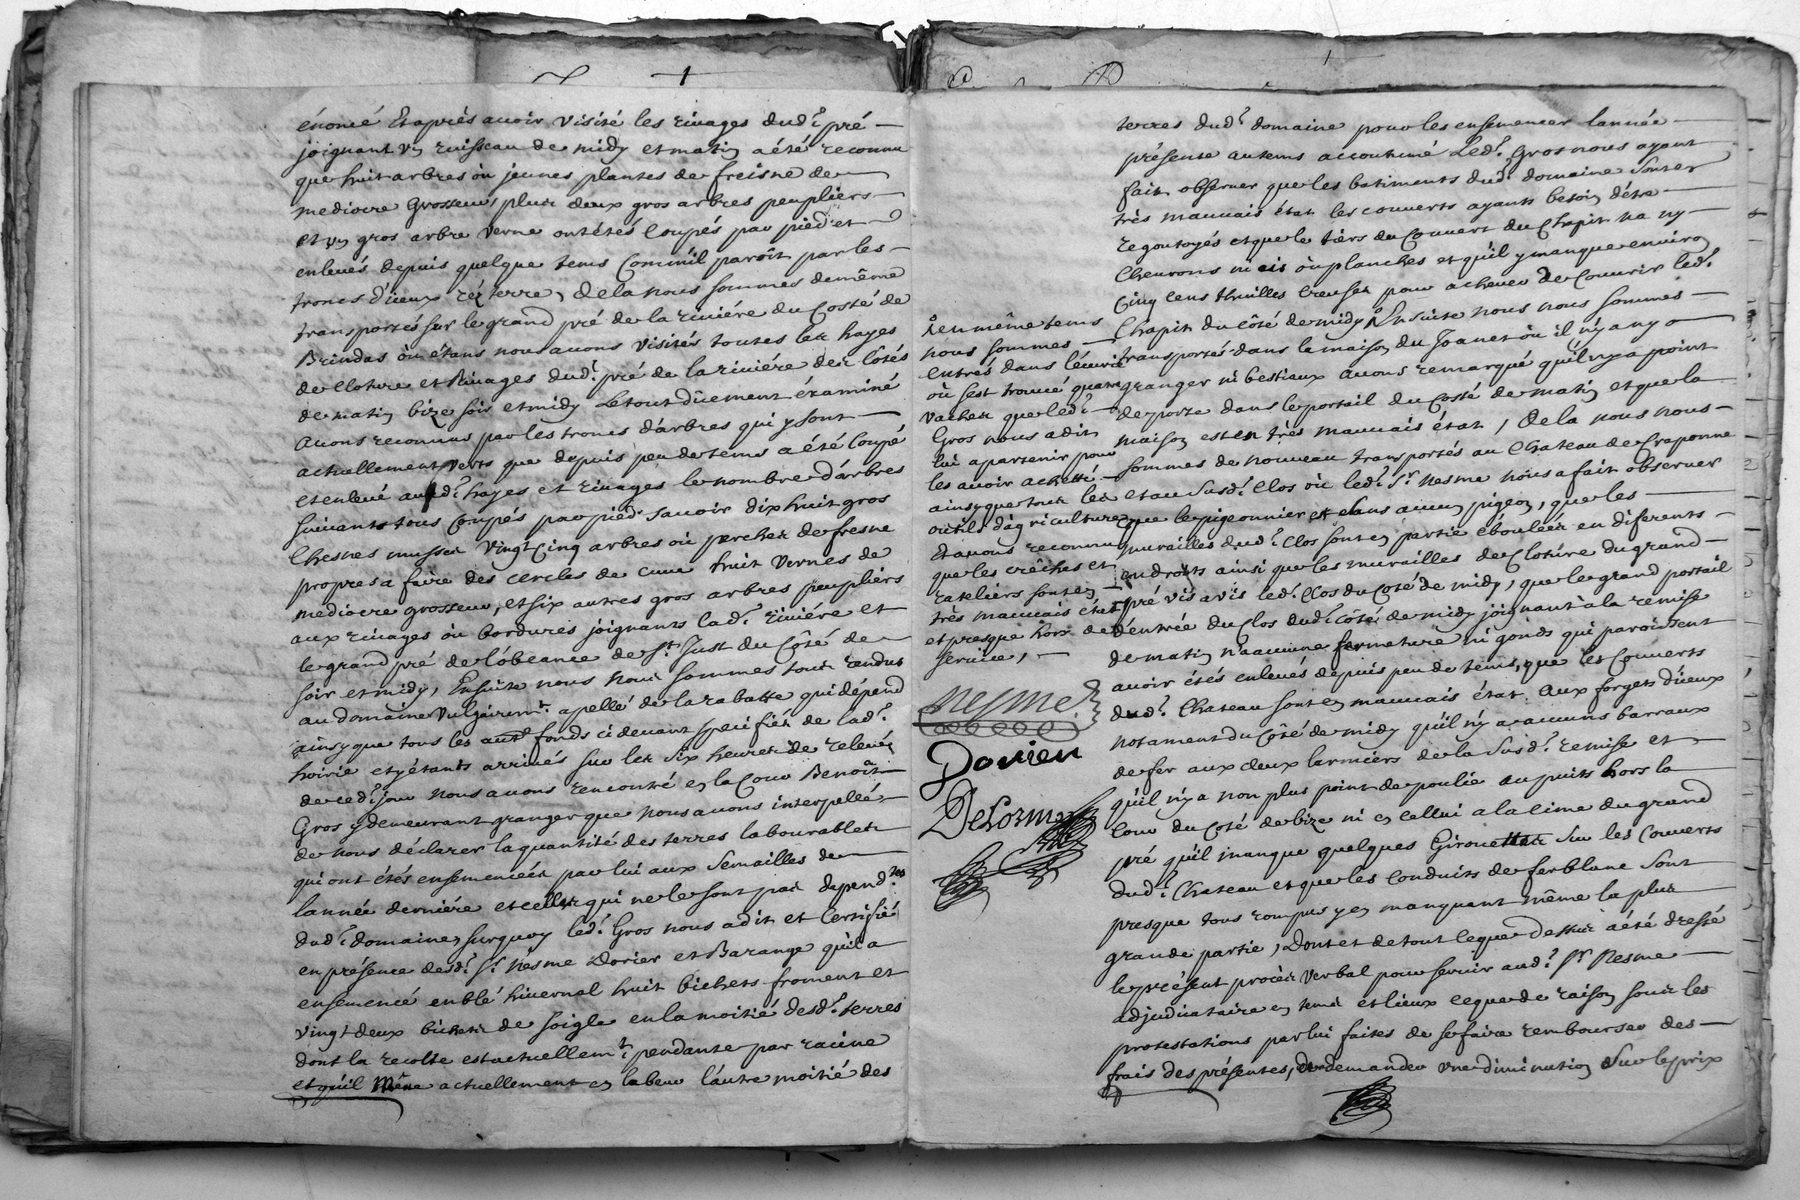 énoncé Et aprés avoir visité les rivages dud.t pré
joignant un ruisseau de midy et matin a été reconnu
que huit arbres ou jeunes plantes de freisne de
mediocre grosseur, plus deux gros arbres peupliers
et un gros arbre verne ont étés coupés par pied et
enlevés depuis quelque tems comm'il paroît par les
troncs d'iceux réz terre, de la nous sommes de même
transportés sur le grand pré de la riviére du costé de
Brindas ou étans nous avons visités toutes les hayes
de cloture et Rivages dud.t pré de la riviére des côtés
de matin bize soir et midy Le tout dûement éxaminé
avons reconnus par les troncs d'arbres qui y sont
actuellement verts que depuis peu de tems a été coupé
et enlevé auxd.t hayes et rivages le nombre d'arbres
suivants tous coupés par pied savoir dix huit gros
Chesnes mussis vingt cinq arbres ou perches de fresne
propres a faire des cercles de cuve huit vernes de
mediocre grosseur, et six autres gros arbres peupliers
aux rivages ou bordures joignants lad.t riviére et
le grand pré de l'obeance de S.t Just du Côté de
soir et midy, Ensuite nous nous sommes tous rendus
au domaine vulgairem.t apellé de la rabatte qui dépend
ainsy que tous les autr. fonds cidevant specifiés de lad.t
hoirie et y étants arrivés sur les six heures de relevée
de ced.t jour nous avons rencontré en la Cour Benoît
Gros y demeurant granger que nous avons interpellé
de nous déclarer la quantité des terres labourables
qui ont étés ensemencées par lui aux semailles de
lannée derniére et celles qui ne le sont pas depend.tes
dud.t domaine, surquoy led.t Gros nous a dit et Certifié
en présence desd.t S.r Nesme Dorier et Barange qu'il a
ensemencé en blé hivernal huit bichets froment et
vingt deux bichets de soigle en la moitié desd.t terres
dont la recolte est actuellem.t pendante par racine
et qu'il mêne actuellement en labeur l'autre moitié des
terres dud.t domaine pour les ensemencer lannée
présente au tems accoutumé Led.t Gros nous ayant
fait observer que les batiments dud.t domaine sont en
très mauvais état les couverts ayants besoin d'étre
regoutoyés et que le tiers du Couvert du Chapit na ny
Chevrons n'ais ou planches et qu'il y manque environ
Cinq cens thuilles creuses pour achever de Couvrir led.t
Chapit du côté de midy, Ensuite nous nous sommes
transportés dans la maison du Joanet où il n'y a ny
granger ni bestiaux avons remarqué qu'il n'y a point
de porte dans le portail du costé de matin et que la
maison est en très mauvais état, De la nous nous
sommes de nouveau transportés au Chateau de Craponne
et au susd.t Clos où led.t S.r Nesme nous a fait observer
que le pigeonnier est sans aucun pigeon, que les
murailles dud.t Clos sont en partie éboulées en diferents
endroits ainsi que les murailles de Cloture du grand
pré vis avis led.t Clos du Coté de midy, que le grand portail
d'entrée du Clos dud.t côté de midy joignant à la remise
de matin n'a aucune fermeture ni gonds qui paroissent
avoir étés enlevés depuis peu de tems, que les Couverts
dud.t Chateau sont en mauvais état aux forgets d'iceux
notament du Côté de midy qu'il n'y a aucuns barraux
de fer aux deux larmiers de la susd.t remise et
qu'il n'y a non plus point de poulie au puits hors la
cour du Coté de bize ni en cellui a la cime du grand
pré qu'il manque quelques Girouettes sur les Couverts
dud.t Chateau et que les conduits de ferblanc sont
presque tous rompus y en manquant même la plus
grande partie, Dont et de tout le que dessus a été dressé
le présent procés verbal pour servir aud.t S.r Nesme
adjudicataire en tems et lieux ce que de raison sous les
protestations par lui faites de se faire rembourser des
frais des présentes, de demander une diminution sur le prix
et en même tems
nous sommes
entrés dans l'écurie
où sest trouvé quatre
vaches que led.t
Gros nous a dit
lui apartenir pour
les avoir achetté
ainsy que tous les
outils d'agriculture
Et avons reconnu
que les crêches et
rateliers sont en
très mauvais état
et presque hors de
service,
Nesme
Dorier
Delorme